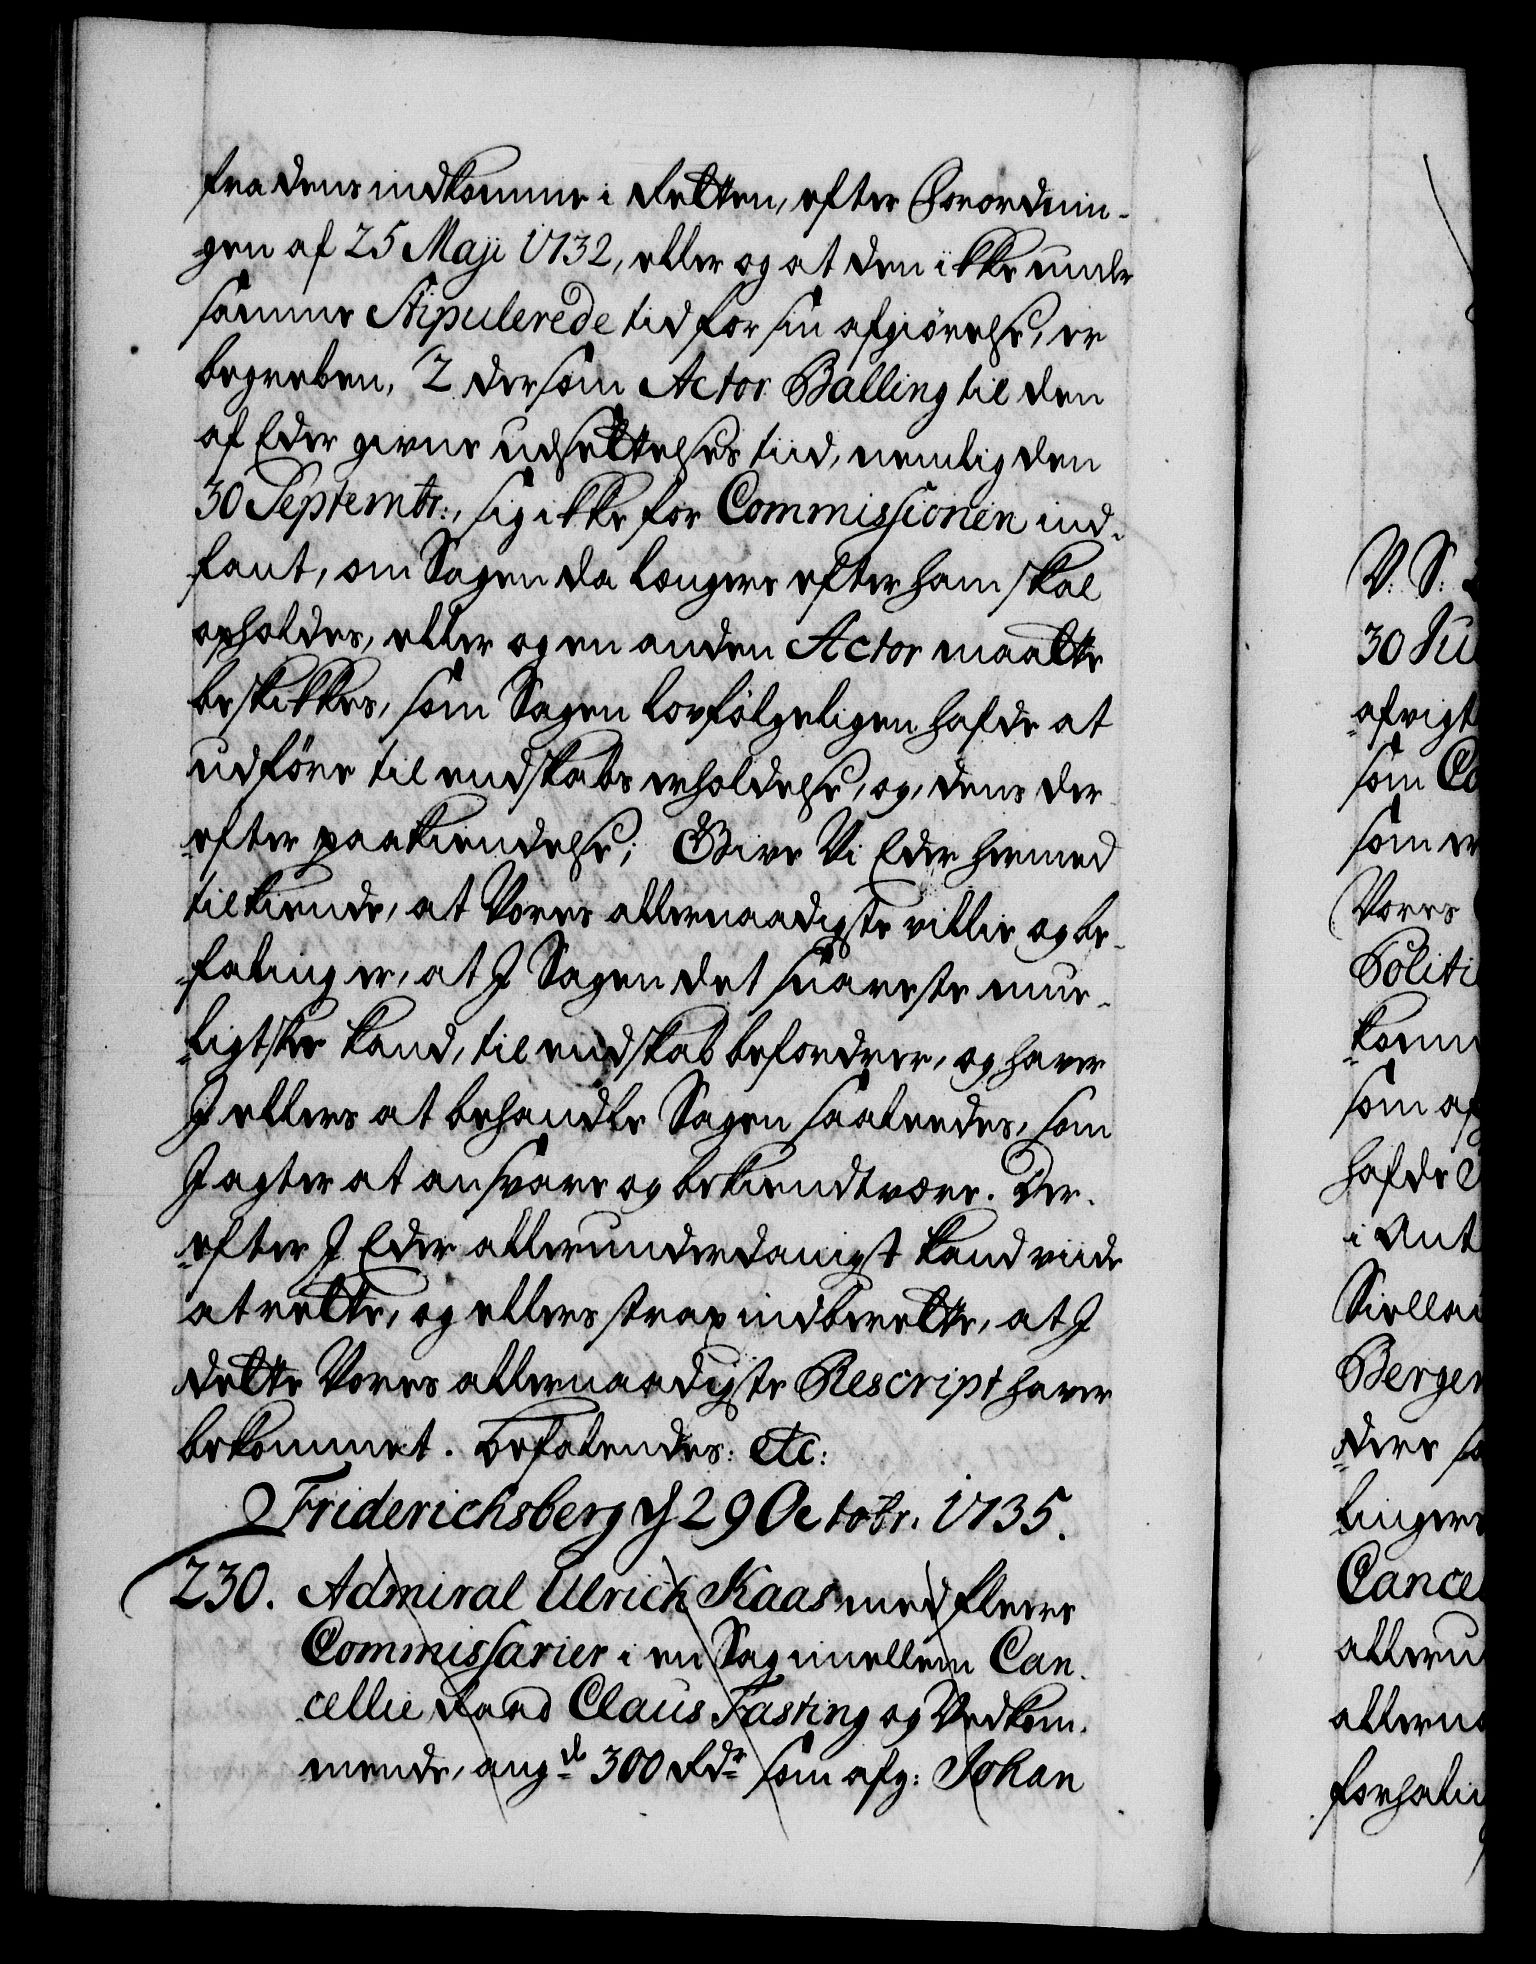 fra dens indkomme i Retten, efter Forordnin-
gen af 25 Maji 1732, eller og at den ikke under
samme Stipulerede tid for sin afgiörelse, er
begreben, 2 dersom Actor Balling til den
af Eder givne udsettelses tiid, nemlig den
30 Septembr:, sig ikke for Commissionen ind-
fant, om Sagen da længere efter ham skal
opholdes, eller og en anden Actor maatte
beskikkes, som Sagen lovfölgeligen hafde at
udföre til endskabs erholdelse, og, dens der
efter paakiendelse; Give Vi Eder hermed
tilkiende, at Vores allernaadigste villie og be-
faling er, at J Sagen det snareste mue-
ligt skee kand, til endskab befordrer, og haver
J ellers at behandle Sagen saaledes, som
J agter at ansvare og bekiendt være. Der-
efter J Eder allerunderdanigst kand viide
at rette, og ellers strax indberette, at J
dette Vores allernaadigste Rescript haver
bekommet. Befalendes: etc:
Friderichsberg d 29 Octobr. 1735.
230. Admiral Ulrich Kaas med fleere
Commissarier i en Sag imellem Can-
cellie Raad Claus Fasting og Vedkom-
mende, angde 300 Rdr som afg: Johan
V. S:
30 Ju
afvigt
som Co
som er
Vores
Politi
komm
som af
hafde
i Ant
Siellan
Bergen
dere sa
lingers
Cancel
alleru
allerna
forhali